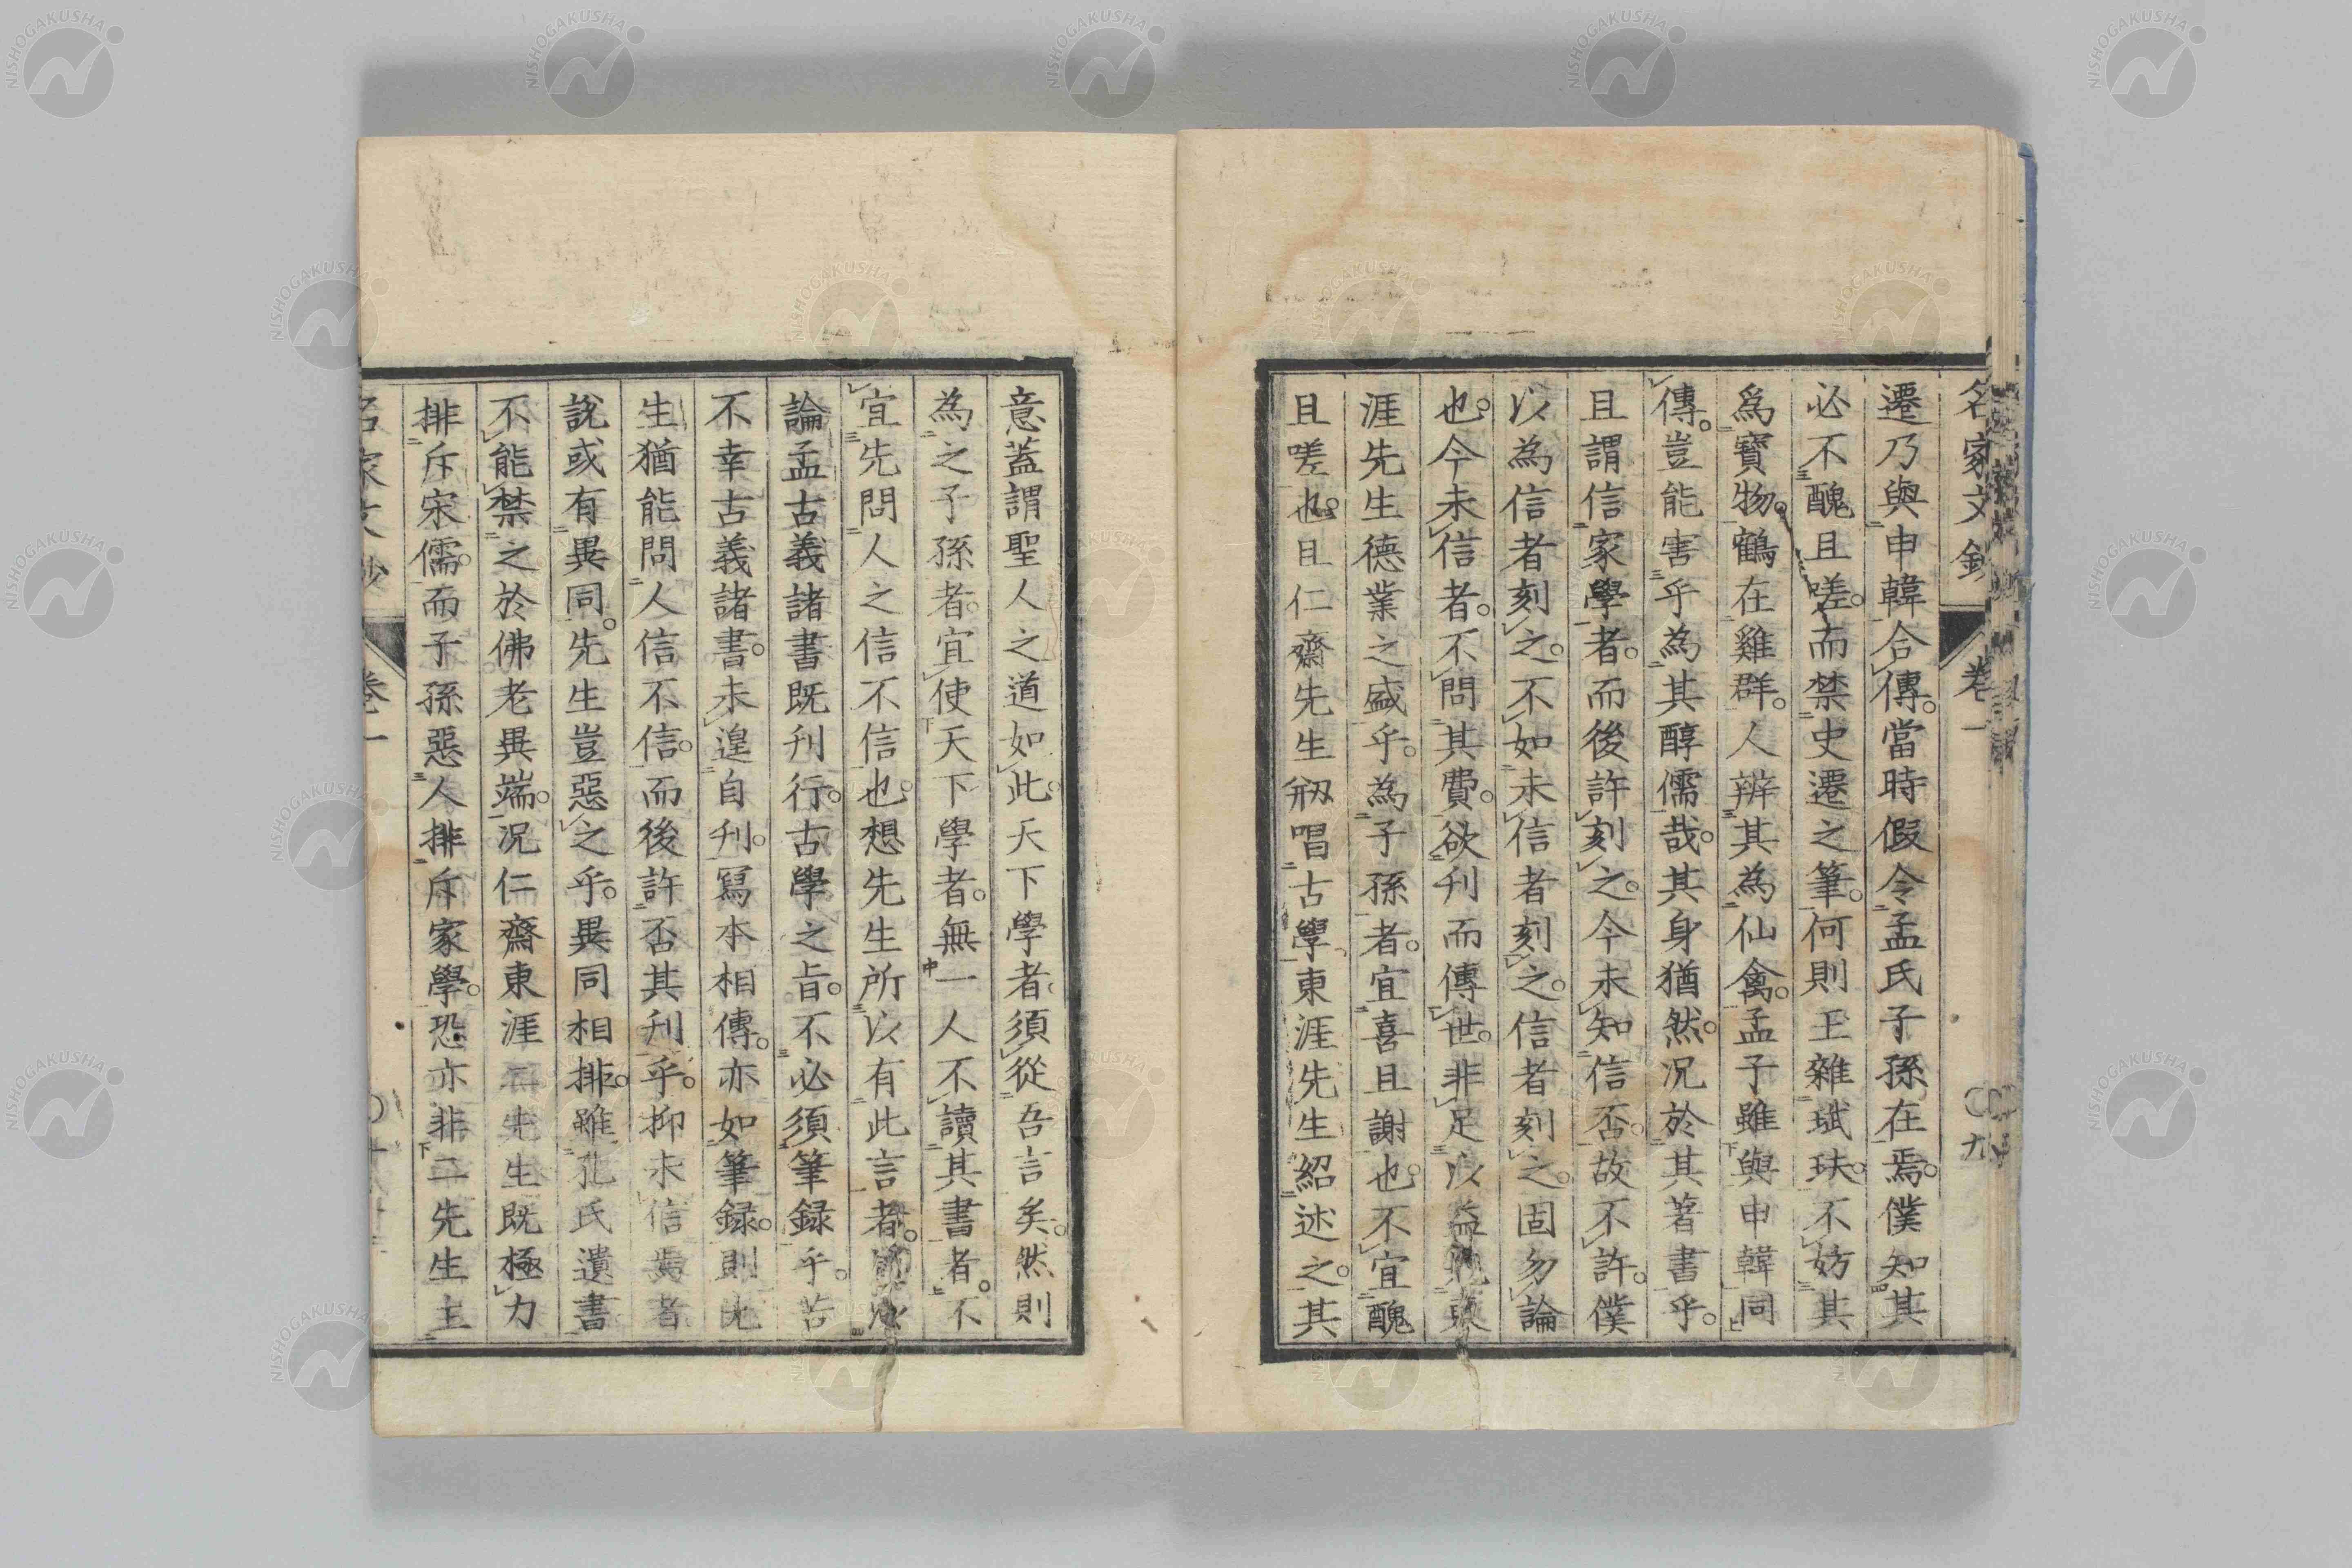 名家文鈔 卷一 九
遷乃與申韓合傳。當時假令孟氏子孫在焉。僕知其
必不醜且嗟。而禁史遷之筆。何則玉雜珷玞。不妨其
爲寶物。鶴在雞群。人辨其為仙禽。孟子雖與申韓同
傳。豈能害乎為其醇儒哉。其身猶然。況於其著書乎。
且謂信家學者。而後許刻之。今未知信否。故不許。僕
以為信者刻之。不如未信者刻之。信者刻之。固勿論
也。今未信者。不問其費。欲刊而傳世。非足以益
涯先生德業之盛乎。為子孫者。宜喜且謝也。不宜醜
且嗟也。且仁齋先生剏唱古學東涯先生紹述之。其
意蓋謂聖人之道如此。天下學者。須從吾言矣。然則
為之子孫者。宜使天下學者。無一人不讀其書者。不
宜先問人之信不信也。想先生所以有此言者。
論孟古義諸書既刊行。古學之旨。不必須筆録乎。若
不幸古義諸書。未遑自刊。寫本相傳。亦如筆録。則先
生猶能問人信不信。而後許否其刊乎。抑未信焉者
說或有異同。先生豈惡之乎。異同相排。雖孔氏遺書
不能禁之於佛老異端。況仁齋東涯二先生既極力
排斥宋儒。而子孫惡人排斥家學。恐亦非二先生主
名家文鈔 卷一